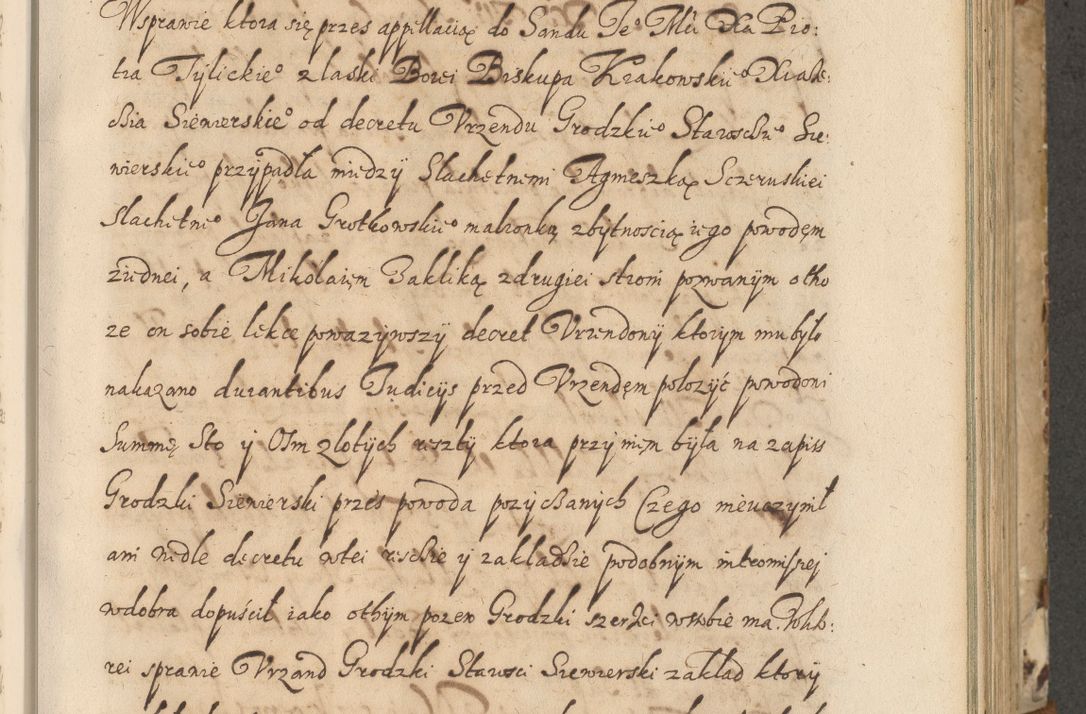 Wsprawie ktora się przes appellacią do Sandu Je° Mći Xa Pio:
tra Tylickie° z laski Bozei Biskupa Krakowskie° Xiaze:
cia Siewierskie° od decretu Vrzendu Grodzkie° Starosckie° Sie:
wierskie° przypadla miedzy Slachetnemi Agnieszką Sczeruskiei
Slachetne° Jana Grotkowskie° malzonką zbytnoscią iego powodęm
ziednei, a Mikolaięm Zakliką z drugiei stroni pozwanym otho
ze on sobie lekce powazywszy decret Vrzendony ktorym mu bylo
nakazano durantibus Judicijs przed Vrzendęm polozyć powodoni
Summę Sto y Osm zlotych reszty ktora przy niem była na zapiss
Grodzki Siewierski przes powoda pozyczanych Czego nieuczynił
ani wedle decretu wtei resckie y zakladzie podobnym intromissiej
wdobra dopuścił iako othym pozew Grodzki szerzei wsobie ma. Wkto:
rei sprawie Vrzand Grodzki Starosci Siewierski zaklad ktory